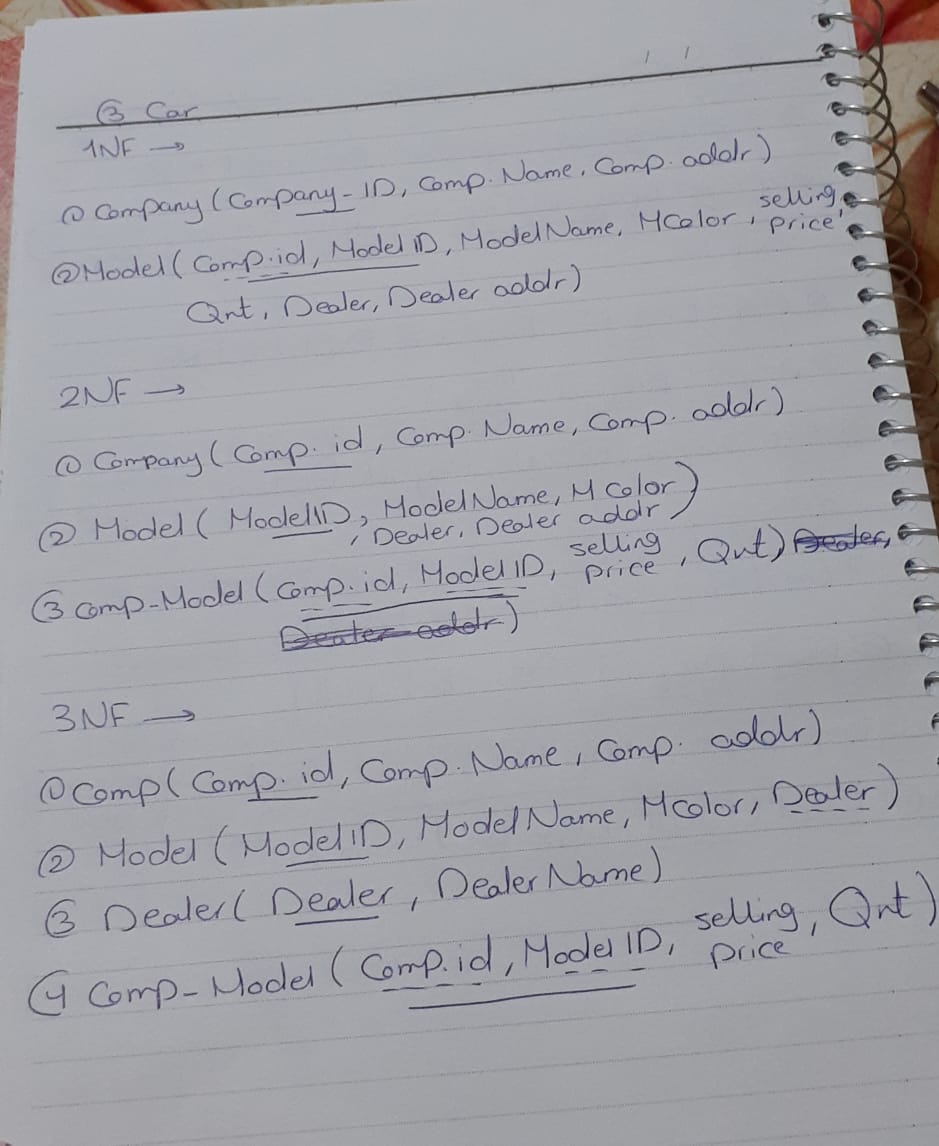 / /
③ Car
1NF →
① Company (Company-ID, Comp. Name, Comp. addr)
② Model (Comp.id, Model ID, ModelName, MColor, selling price,
Qnt, Dealer, Dealer addr)
2NF →
① Company (Comp. id, Comp. Name, Comp. addr)
② Model (ModelID, ModelName, MColor)
, Dealer, Dealer addr
③ Comp-Model (Comp.id, Model ID, selling price, Qnt) Dealer,
Dealer addr)
3NF →
① Comp (Comp. id, Comp. Name, Comp. addr)
② Model (ModelID, ModelName, Mcolor, Dealer)
③ Dealer (Dealer, DealerName)
④ Comp-Model (Comp.id, Model ID, selling price, Qnt)